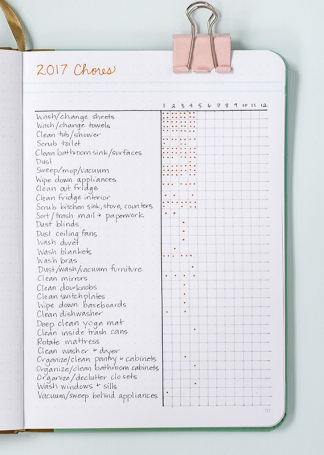 2017 Chores
1 2 3 4 5 6 7 8 9 10 11 12
Wash/change sheets
Wash/change towels
Clean tub/shower
Scrub toilet
Clean bathroom sink/surfaces
Dust
Sweep/mop/vacuum
Wipe down appliances
Clean out fridge
Clean fridge interior
Scrub kitchen sink, stove, counters
Sort/trash mail + paperwork
Dust blinds
Dust ceiling fans
Wash duvet
Wash blankets
Wash bras
Dust/wash/vacuum furniture
Clean mirrors
Clean doorknobs
Clean switchplates
Wipe down baseboards
Clean dishwasher
Deep clean yoga mat
Clean inside trash cans
Rotate mattress
Clean washer + dryer
Organize/clean pantry + cabinets
Organize/clean bathroom cabinets
Organize/declutter closets
Wash windows + sills
Vacuum/sweep behind appliances